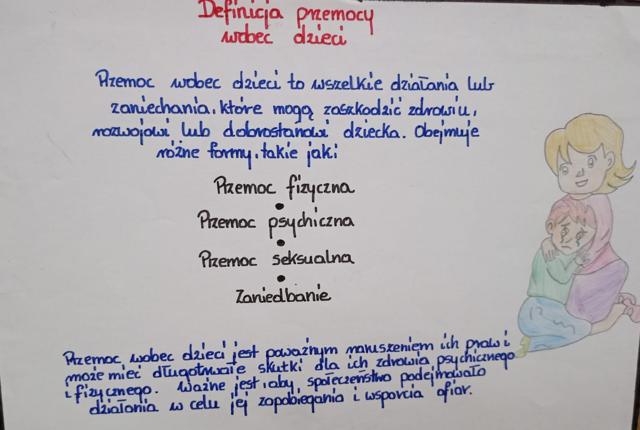 Definicja przemocy
wobec dzieci
Przemoc wobec dzieci to wszelkie działania lub
zaniechania, które mogą zaszkodzić zdrowiu,
rozwojowi lub dobrostanowi dziecka. Obejmuje
różne formy, takie jak:
Przemoc fizyczna
Przemoc psychiczna
Przemoc seksualna
Zaniedbanie
Przemoc wobec dzieci jest poważnym naruszeniem ich praw i
może mieć długotrwałe skutki dla ich zdrowia psychicznego
i fizycznego. Ważne jest, aby społeczeństwo podejmowało
działania w celu jej zapobiegania i wsparcia ofiar.